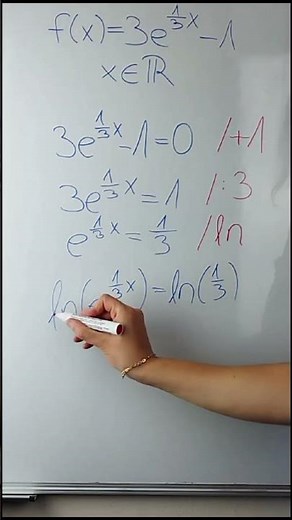 f(x)=3e^{\frac{1}{3}x}-1
x∈ℝ
3e^{\frac{1}{3}x}-1=0 /+1
3e^{\frac{1}{3}x}=1 /:3
e^{\frac{1}{3}x}=\frac{1}{3} /ln
ln(^{\frac{1}{3}x})=ln(\frac{1}{3})